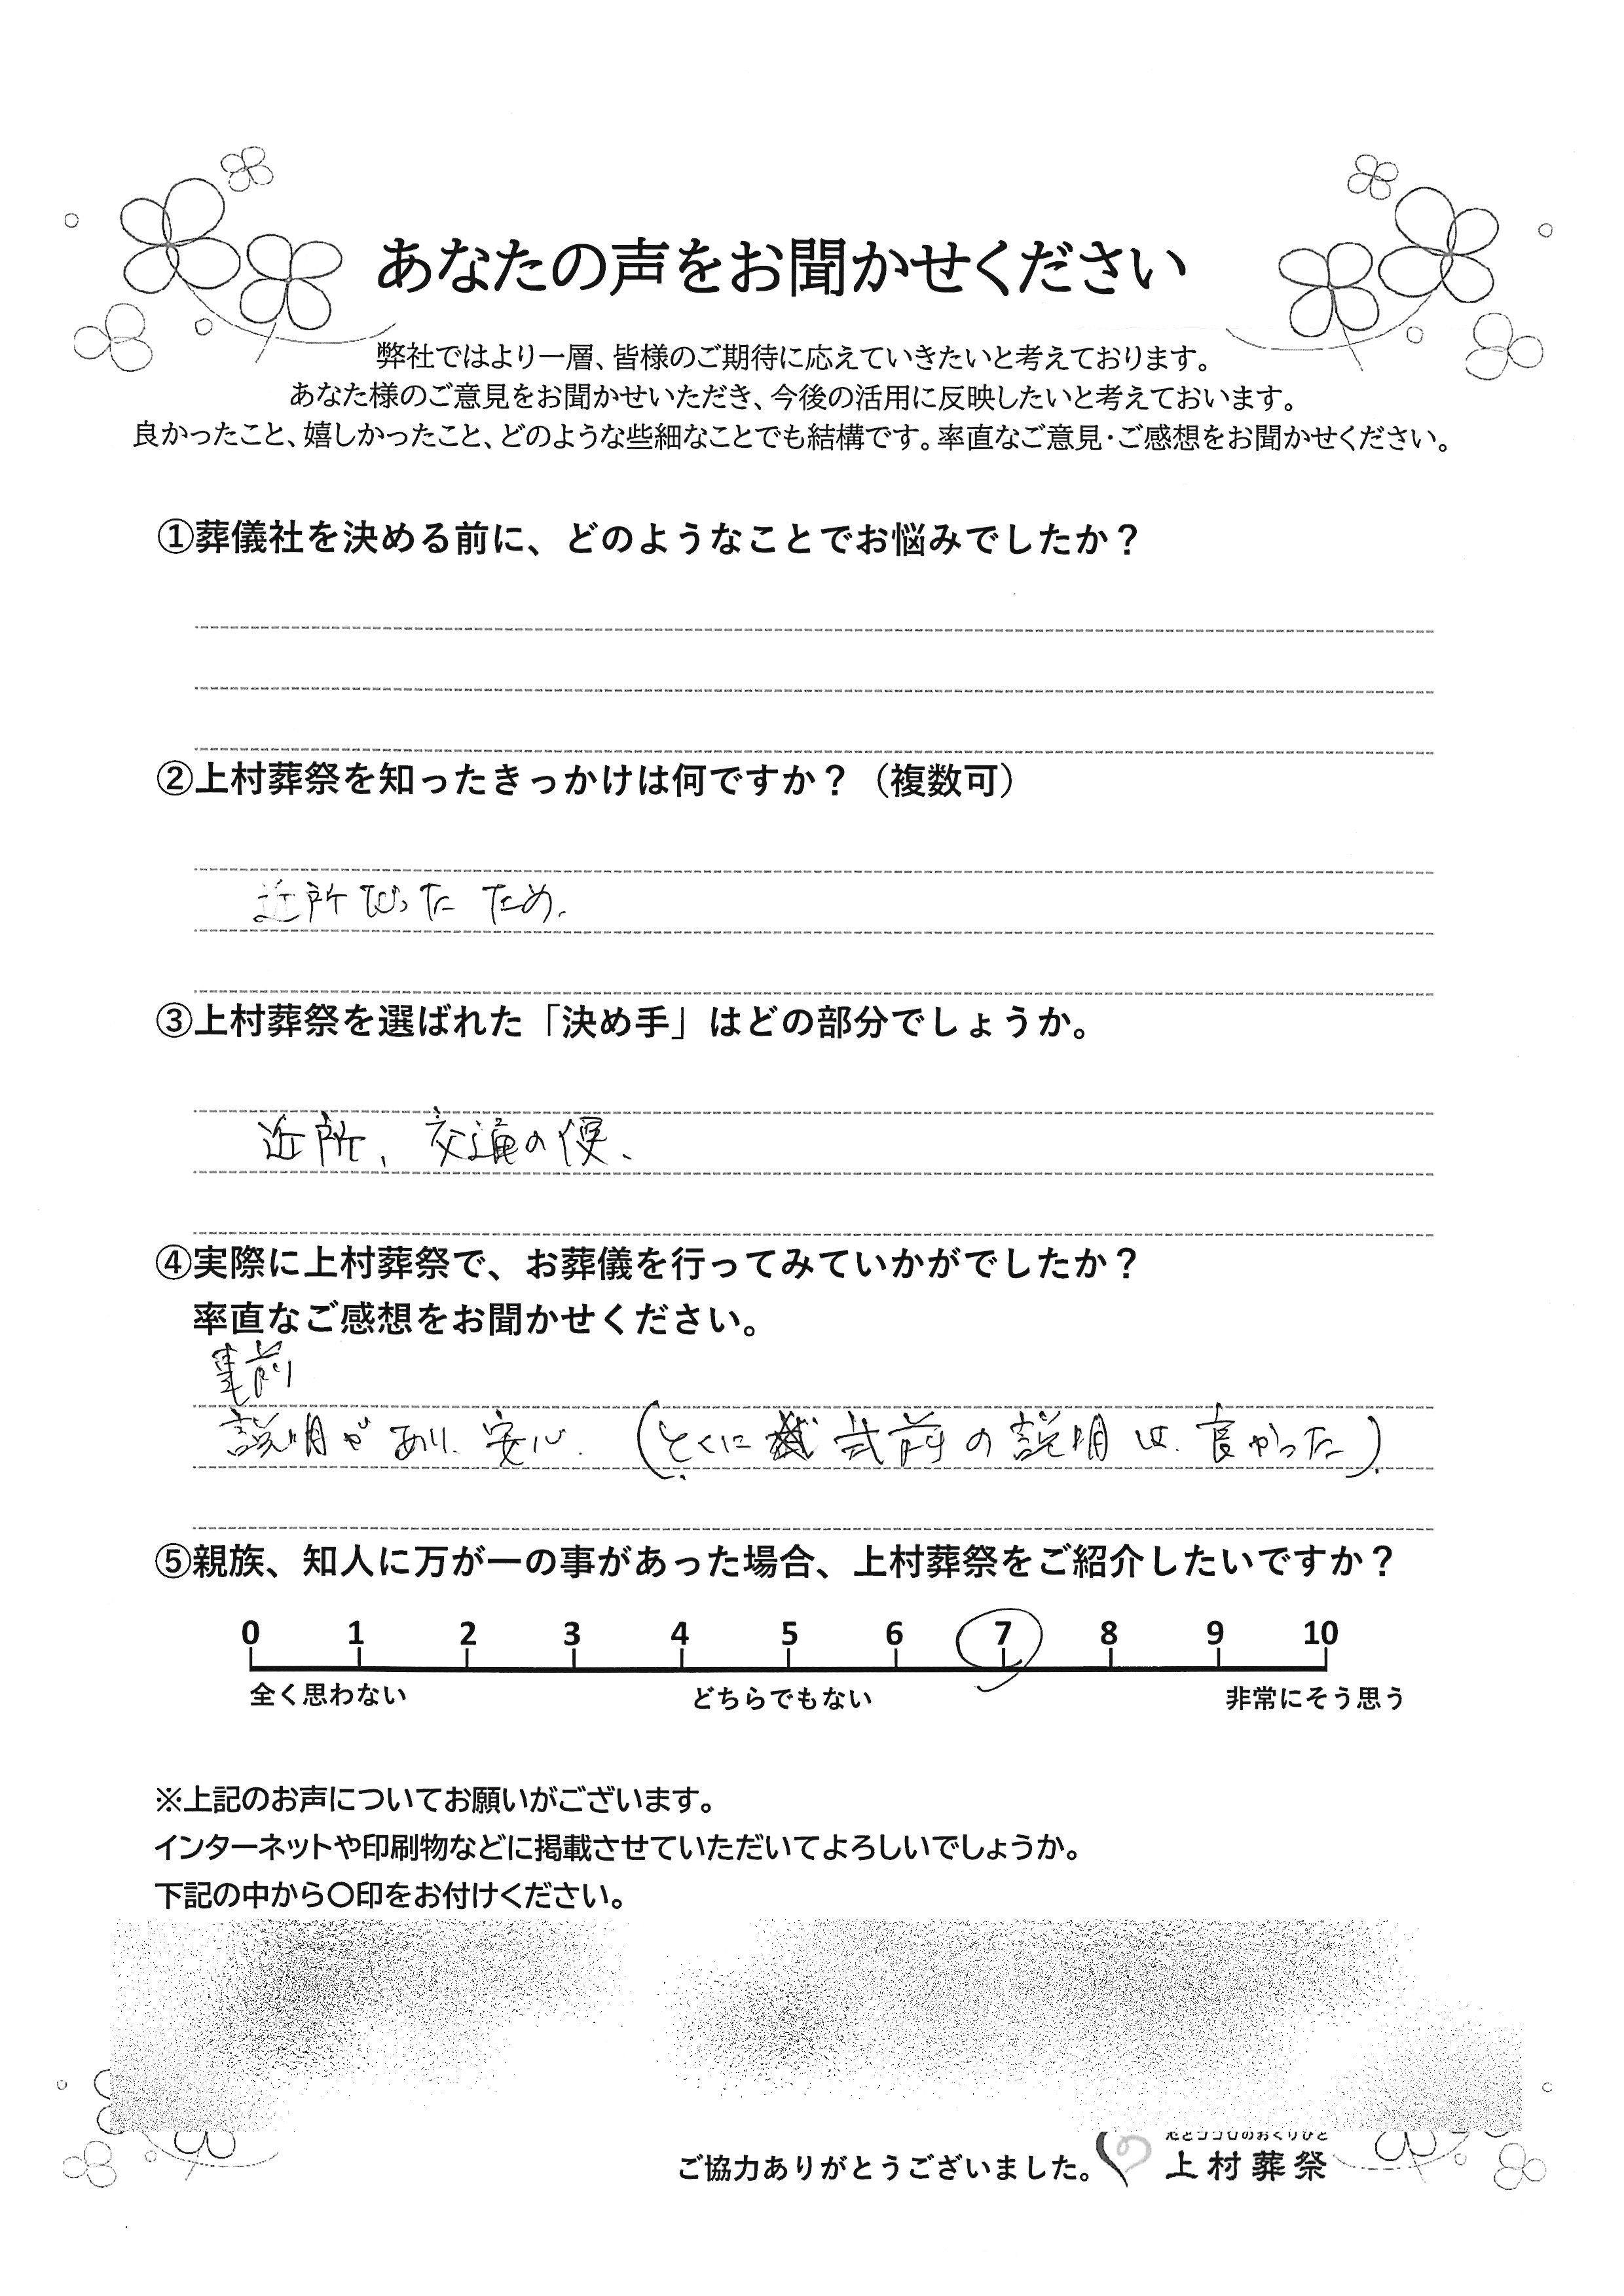 あなたの声をお聞かせください
弊社ではより一層、皆様のご期待に応えていきたいと考えております。
あなた様のご意見をお聞かせいただき、今後の活用に反映したいと考えておいます。
良かったこと、嬉しかったこと、どのような些細なことでも結構です。率直なご意見・ご感想をお聞かせください。
①葬儀社を決める前に、どのようなことでお悩みでしたか？
②上村葬祭を知ったきっかけは何ですか？（複数可）
近所だった ため.
③上村葬祭を選ばれた「決め手」はどの部分でしょうか。
近所、交通の便、
④実際に上村葬祭で、お葬儀を行ってみていかがでしたか？
率直なご感想をお聞かせください。
事前
説明があり、安心. (とくに 式前の説明は、良かった).
⑤親族、知人に万が一の事があった場合、上村葬祭をご紹介したいですか？
0 1 2 3 4 5 6 7 8 9 10
全く思わない どちらでもない 非常にそう思う
※上記のお声についてお願いがございます。
インターネットや印刷物などに掲載させていただいてよろしいでしょうか。
下記の中から〇印をお付けください。
ココロのおくりびと
ご協力ありがとうございました。 上村葬祭